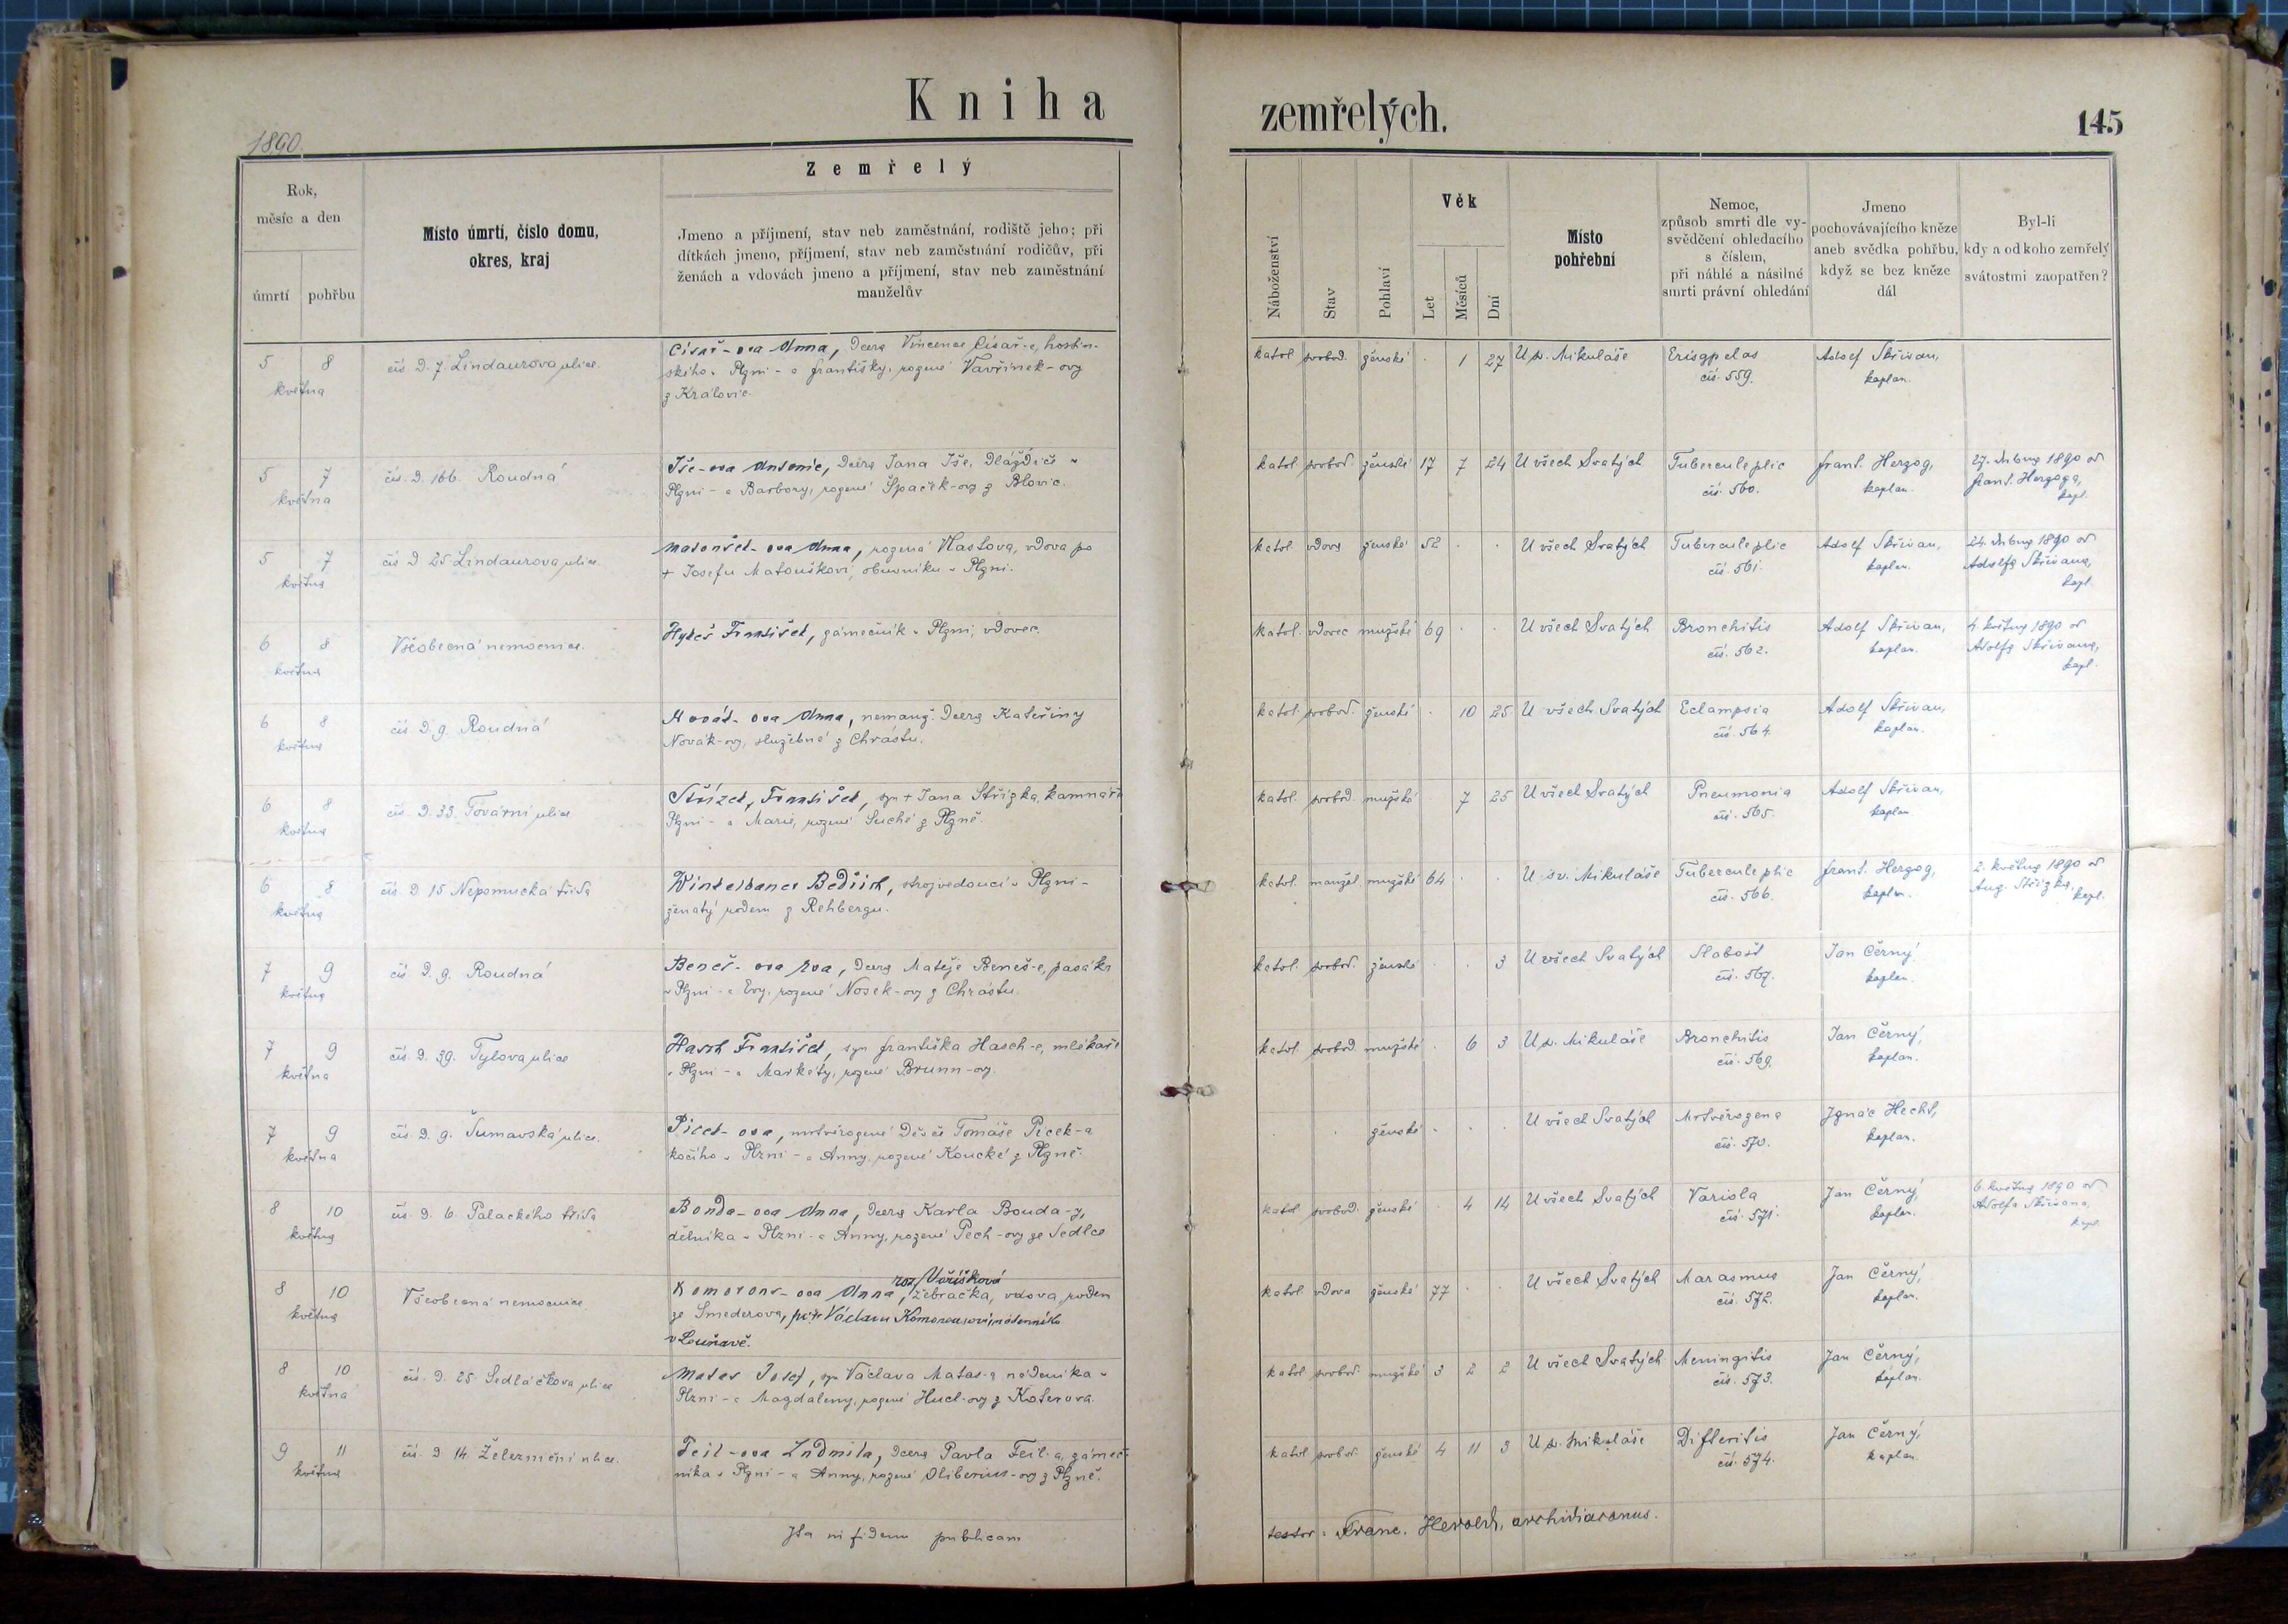 Kniha zemřelých.
145
1890
Rok, měsíc a den
úmrtí pohřbu
Místo úmrtí, číslo domu, okres, kraj
Zemřelý
Jmeno a příjmení, stav neb zaměstnání, rodiště jeho; při
dítkách jmeno, příjmení, stav neb zaměstnání rodičův, při
ženách a vdovách jmeno a příjmení, stav neb zaměstnání
manželův
Náboženství
Stav
Pohlaví
Věk
Let
Měsíců
Dní
Místo pohřební
Nemoc,
způsob smrti dle vy-
svědčení ohledacího
s číslem,
při náhlé a násilné
smrti právní ohledání
Jmeno
pochovávajícího kněze
aneb svědka pohřbu,
když se bez kněze
dál
Byl-li
kdy a od koho zemřelý
svátostmi zaopatřen?
5 8 května
čís. D. 7. Lindaurova ulice.
Císař-ova Anna, dcera Vincence Císař-e, hostin-
ského v Plzni - a Františky, rozené Vavřinek-ovy
z Kralovic.
katol. svobod. ženské . 1 27 U sv. Mikuláše Erisypelas Adolf Skřivan,
čís. 559. kaplan.
5 7 května
čís. D. 166. Roudná
Iše-ova Antonie, dcera Jana Iše, dlaždiče v
Plzni - a Barbory, rozené Špaček-ovy z Blovic.
katol. svobod. ženské 17 7 24 U všech Svatých Tubercule plic Frant. Herzog, 27. dubna 1890 od
čís. 560. kaplan. Frant. Herzoga,
kapl.
5 7 května
čís D 25 Lindaurova ulice.
Matoušek-ova Anna, rozená Vlastova, vdova po
+ Josefu Matouškovi, obuvníku v Plzni.
katol vdova ženské 52 . . U všech Svatých Tubercule plic Adolf Skřivan, 24. dubna 1890 od
čís. 561. kaplan. Adolfa Skřivana,
kapl.
6 8 května
Všeobecná nemocnice.
Hykeš František, zámečník v Plzni, vdovec.
katol. vdovec mužské 69 . . U všech Svatých Bronchitis Adolf Skřivan, 4. května 1890 od
čís. 562. kaplan. Adolfa Skřivana,
kapl.
6 8 května
čís D. 9. Roudná
Novák-ova Anna, nemanž. dcera Kateřiny
Novák-ovy, služebné z Chrástu.
katol svobod. ženské . 10 25 U všech Svatých Eclampsia Adolf Skřivan,
čís. 564. kaplan.
6 8 května
čís. D. 33. Tovární ulice
Střízek, František, syn + Jana Střízka, kamnáře
Plzni - a Marie, rozené Suché z Plzně.
katol. svobod. mužské 7 25 U všech Svatých Pneumonia Adolf Skřivan,
čís. 565. kaplan
6 8 května
čís. D 15. Nepomucká třída
Bedřich, strojvedoucí v Plzni -
ženatý rodem z Rehbergu.
katol. manžel mužské 64 . . U sv. Mikuláše Tubercule plic Frant. Herzog, 2. května 1890 od
čís. 566. kaplan. Aug. Střízka, kapl.
7 9 května
čís. D. 9. Roudná
Beneš-ova Eva, dcera Matěje Beneš-e, pasáka
v Plzni - a Evy, rozené Nosek-ovy z Chrástu.
katol. svobod. ženské . . 3 U všech Svatých Slabost Jan Černý,
čís. 567. kaplan.
7 9 května
čís. D. 39. Tylova ulice
Hasch František, syn Františka Hasch-e, mlékaře
v Plzni - a Markéty, rozené Brunn-ovy.
katol svobod. mužské . 6 3 U sv. Mikuláše Bronchitis Jan Černý,
čís. 569. kaplan.
7 9 května
čís. D. 9. Šumavská ulice.
Picek-ova, mrtvěrozené děvče Tomáše Picek-a
kočího v Plzni - a Anny, rozené Koucké z Plzně.
. ženské . . . U všech Svatých Mrtvěrozena Ignác Hecht,
čís. 570. kaplan.
8 10 května
čís. D. 6. Palackého třída
Bouda-ova Anna, dcera Karla Bouda-y,
dělníka v Plzni - a Anny, rozené Pech-ovy ze Sedlce
katol svobod. ženské 4 14 U všech Svatých Variola Jan Černý, 6. května 1890 od
čís. 571. kaplan. Adolfa Skřivana,
kapl.
8 10 května
Všeobecná nemocnice.
roz. Voříšková
Komorous-ova Anna, žebračka, vdova, rodem
ze Smederova, po + Václavu Komorousovi, nádenníku
v Letinách.
katol vdova ženské 77 . . U všech Svatých Marasmus Jan Černý,
čís. 572. kaplan.
8 10 května
čís. D. 25. Sedláčkova ulice
Matas Josef, syn Václava Matas-a nádeníka v
Plzni - a Magdaleny, rozené Hucl-ovy z Koterova.
katol svobod. mužské 3 2 2 U všech Svatých Meningitis Jan Černý,
čís. 573. kaplan.
9 11 května
čís. D 14. Železniční ulice.
Feil-ova Ludmila, dcera Pavla Feil-a, zámeč-
níka v Plzni - a Anny, rozené Oliberius-ovy z Plzně.
katol svobod. ženské 4 11 3 U sv. Mikuláše Difteritis Jan Černý,
čís. 574. kaplan.
Ita in fidem publicam testor: Franc. Herold, archidiaconus.